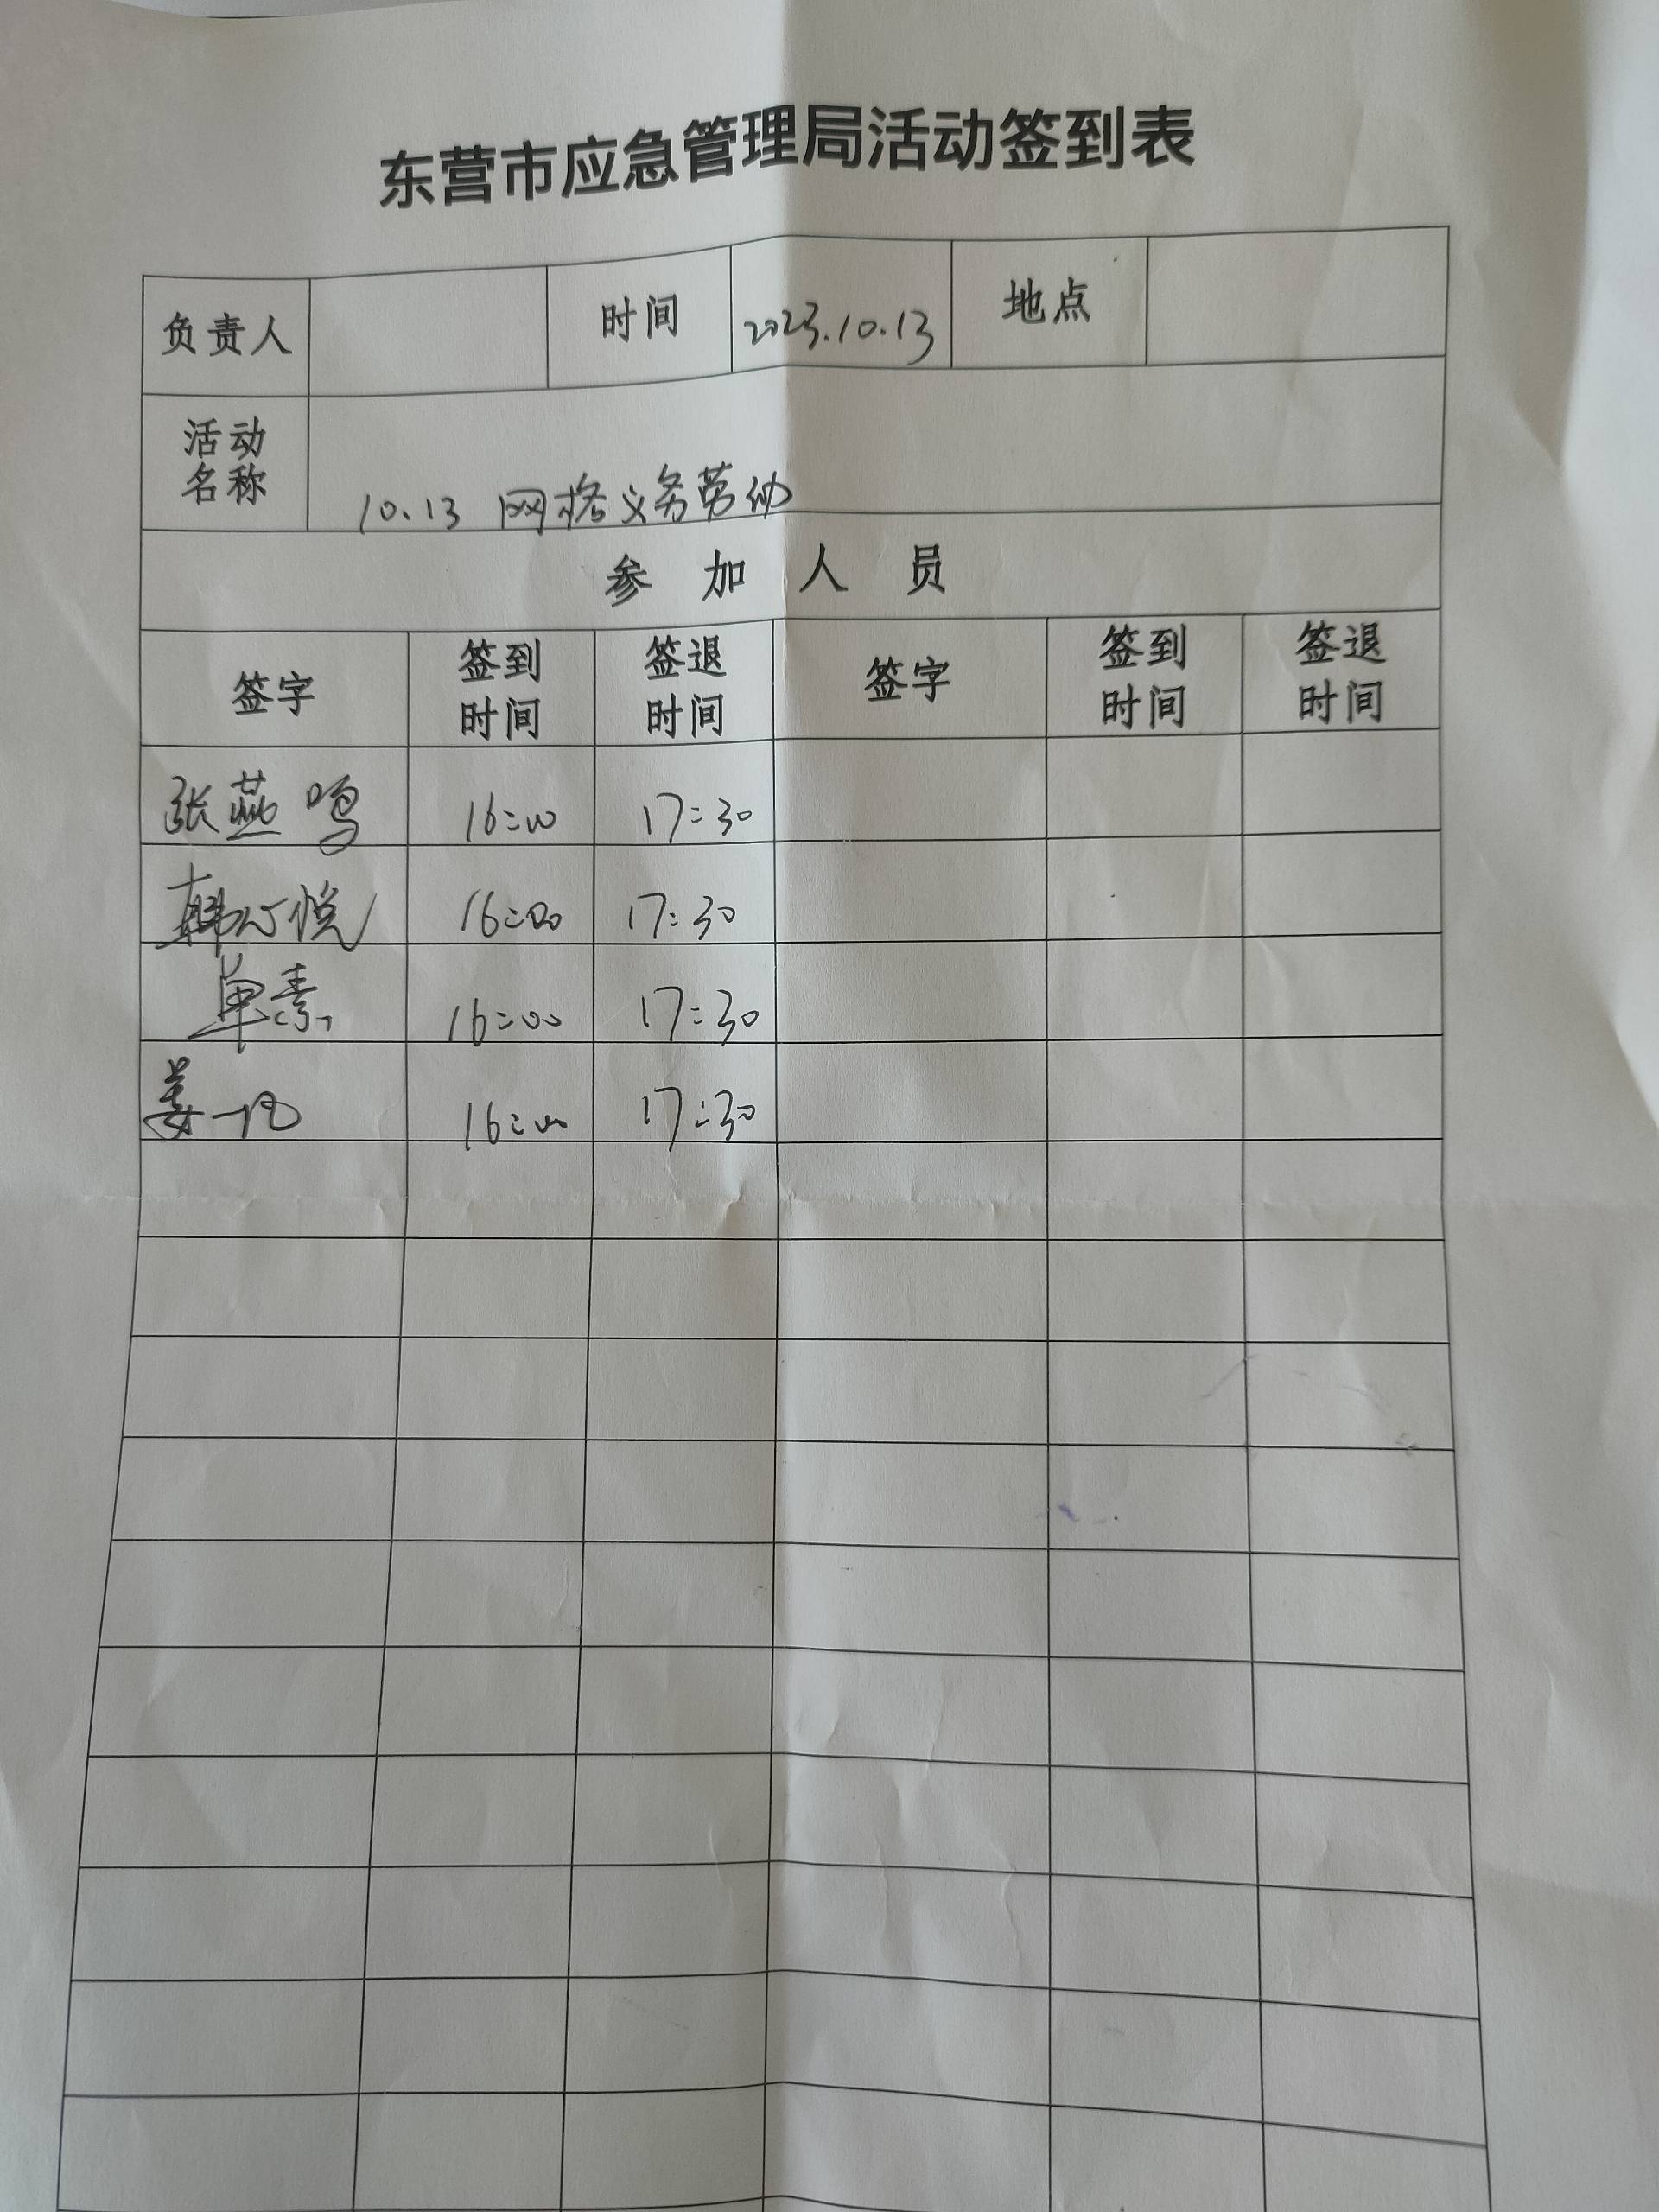 东营市应急管理局活动签到表
负责人 时间 2023.10.13 地点
活动名称 10.13 网格义务劳动
参加人员
签字 签到时间 签退时间 签字 签到时间 签退时间
张燕鸣 16:00 17:30
韩心悦 16:00 17:30
单素 16:00 17:30
姜一凡 16:00 17:30